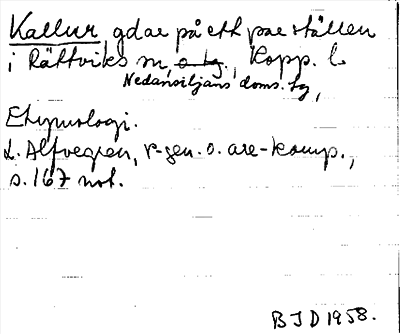 Kallur gdar på ett par ställen
i Rättviks sn o. tg., Kopp. l.
Nedansiljans doms. tg,
Etymologi.
L. Alfvegren, r-gen. o. are-komp.,
s. 167 not.
BJD 1958.